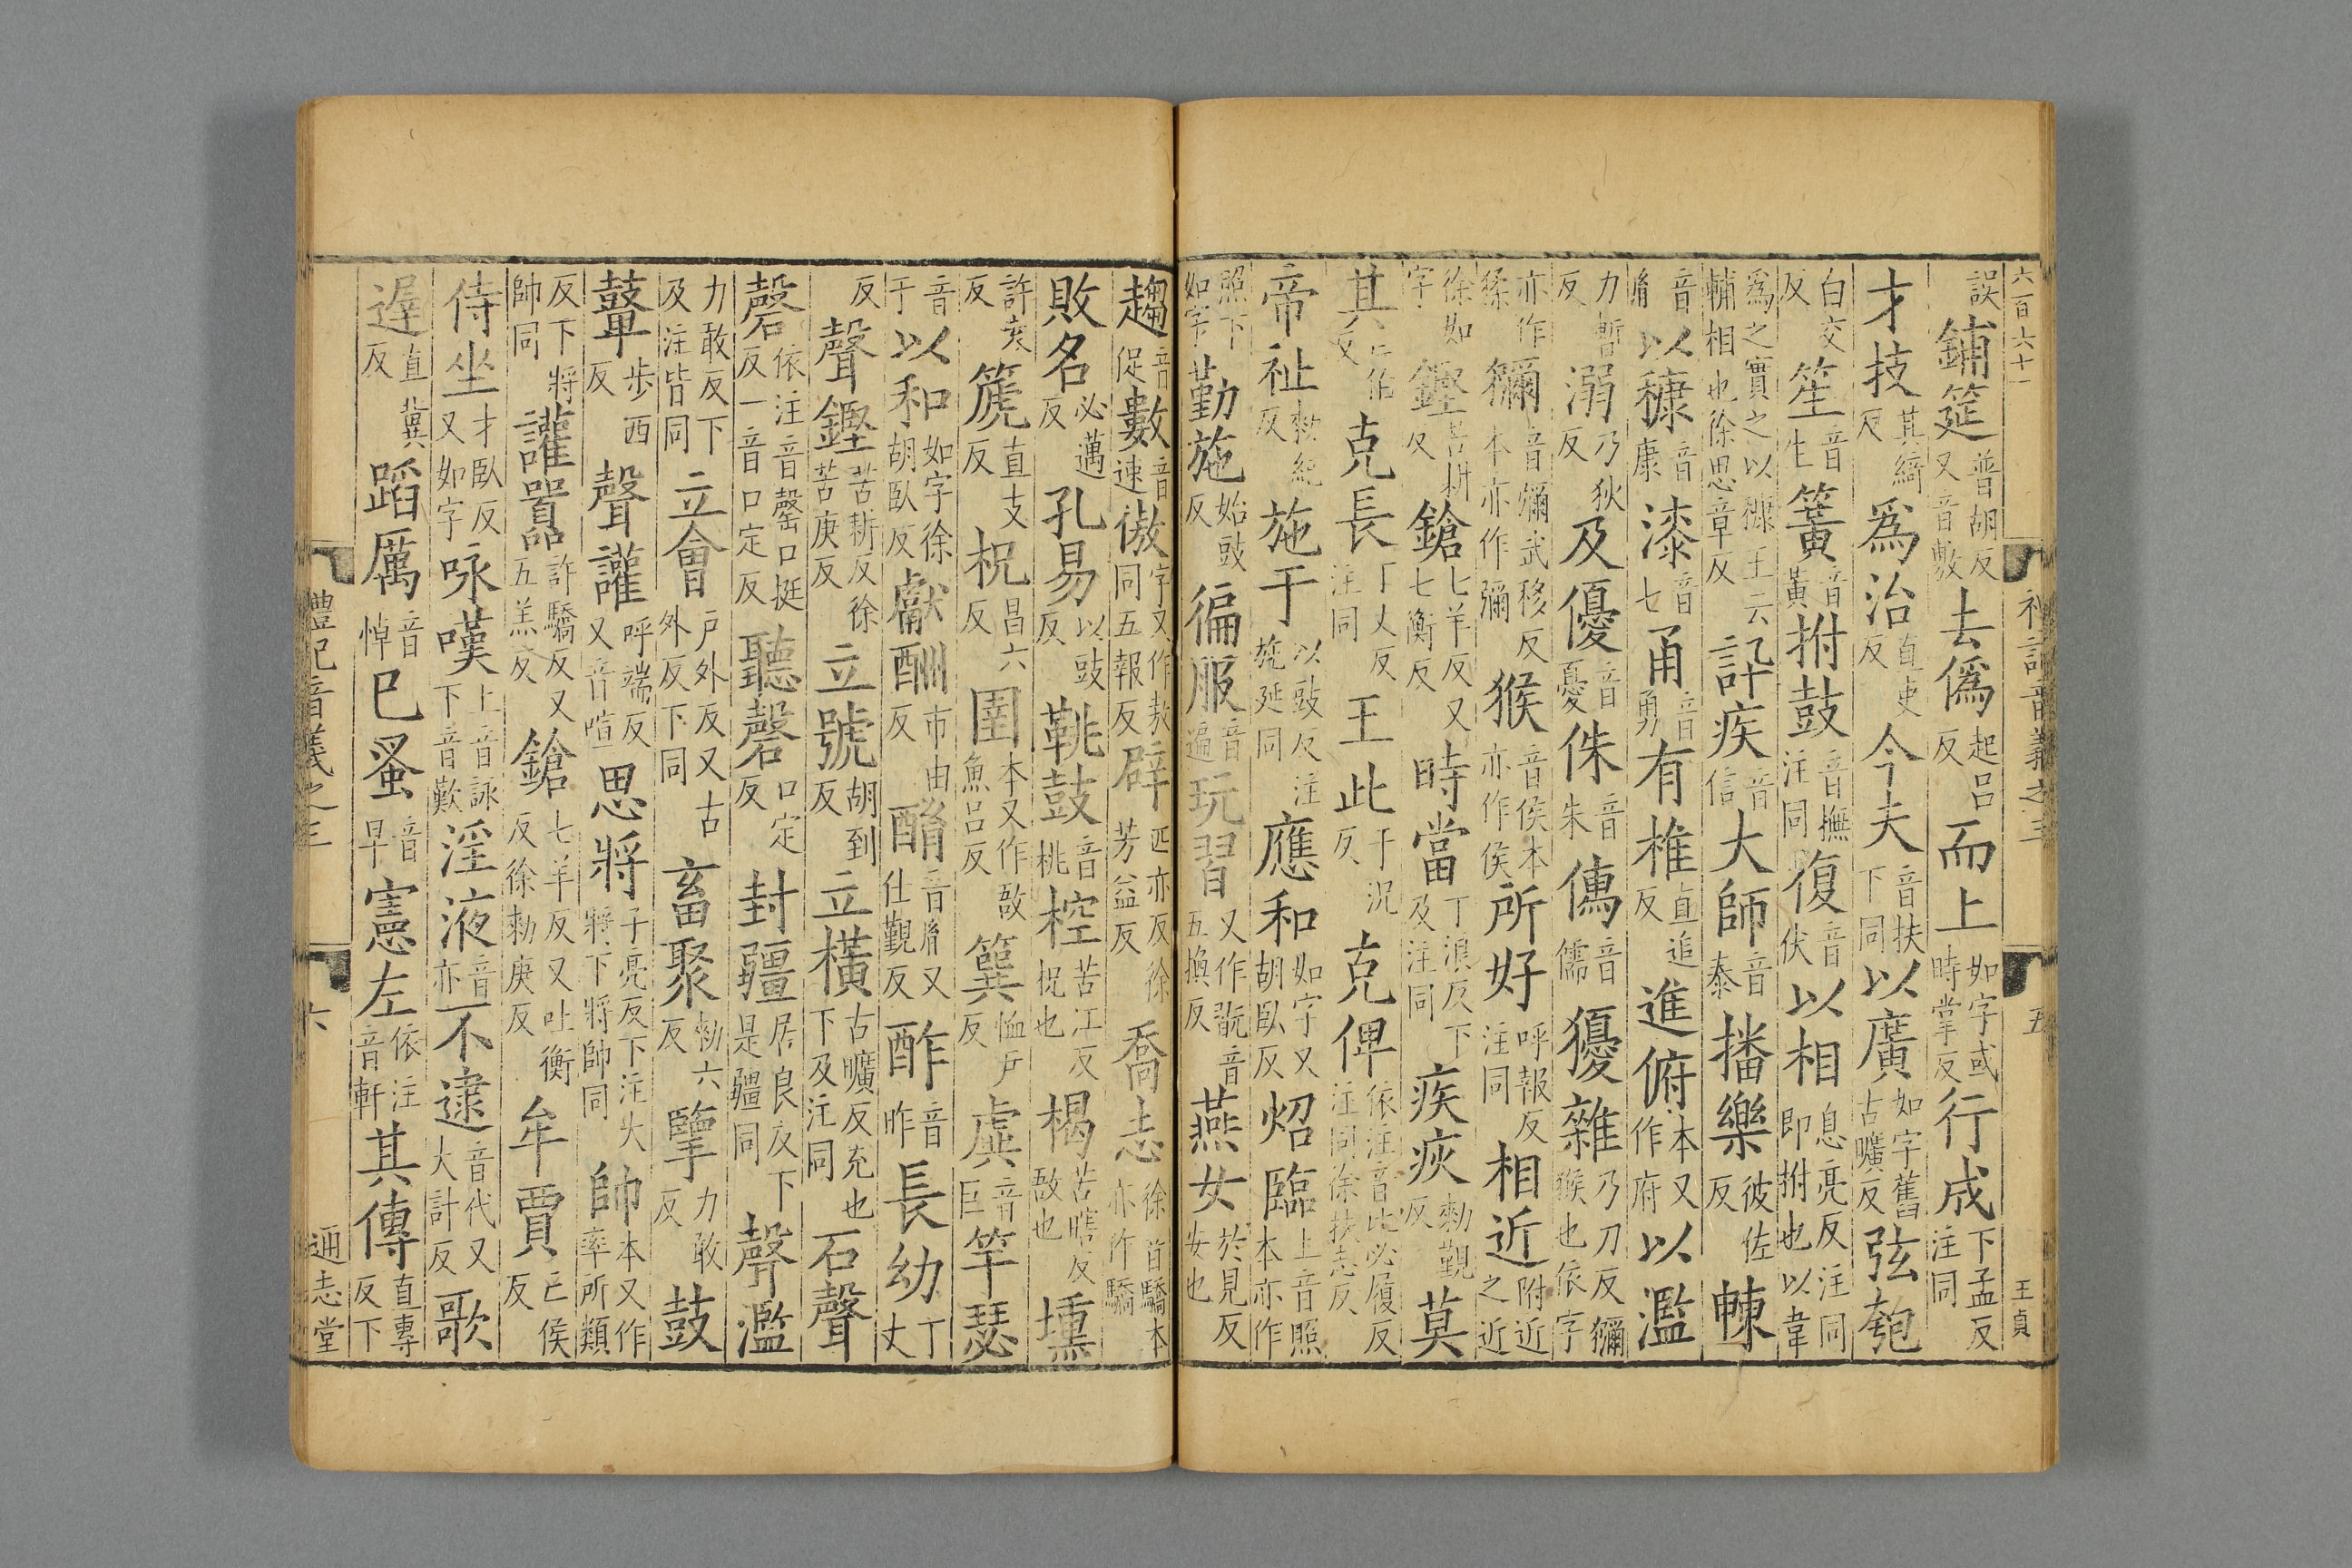 六百六十一
禮記音義之三 五 王貞
誤鋪筵普胡反又音敷去僞起呂反而上如字或時掌反行成下孟反注同
才技其綺反爲治直吏反今夫音扶下同以廣如字舊古曠反弦匏
白交反笙音生簧音黃拊鼓音撫注同復音伏以相息亮反注同即拊也以韋
爲之實之以糠王云輔相也徐思章反訊疾音信大師音泰播樂彼佐反㯥
音胤以穅音康漆音七甬音勇有椎直追反進俯本又作府以濫
力暫反溺乃狄反及優音憂侏音朱儒音儒獶雜乃刀反獼猴也依字
亦作猱獼音彌武移反本亦作彌猴音侯本亦作侯所好呼報反注同相近附近之近
徐如字鏗苦耕反鎗七羊反又七衡反時當丁浪反下及注同疾疢勑覲反莫
其亡伯反克長丁丈反注同王此于況反克俾依注音比必履反注同徐扶志反
帝祉勑紀反施于以豉反注施延同應和如字又胡臥反炤臨上音照本亦作
照下如字勤施始豉反徧服音遍玩習又作翫音五換反燕女於見反女也
趨音促數音速傲字又作敖同五報反辟匹亦反徐芳益反喬志徐音驕本亦作驕
敗名必邁反孔易以豉反鞉鼓音桃椌苦江反柷也楬苦瞎反敔也壎
許袁反箎直支反柷昌六反圉本又作敔魚呂反簨恤尹反虡音巨竽瑟
音于以和如字徐胡臥反獻酬市由反酳音胤又仕覲反酢音昨長幼丁丈
反聲鏗苦耕反徐苦庚反立號胡到反立橫古曠反充也下及注同石聲
磬依注音罄口挺反一音口定反聽磬口定反封疆居良反下是疆同聲濫
力敢反下及注皆同立會戶外反又古外反下同畜聚勑六反擥力敢反鼓
鼙步西反聲讙呼端反又音喧思將子亮反下注大將下將帥同帥本又作率所類
反下將帥同讙嚻許驕反又五羔反鎗七羊反又吐衡反徐勑庚反牟賈亡侯反
侍坐才臥反又如字咏嘆上音詠下音歎淫液音亦不逮音代又大計反歌
遲直冀反蹈厲音悼巳蚤音早憲左依注音軒其傳直專反下
禮記音義之三 六 通志堂